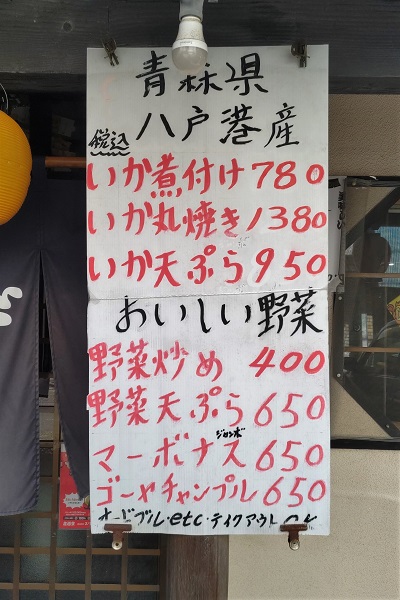 青森県
八戸港産
税込
いか煮付け780
いか丸焼き1380
いか天ぷら950
おいしい野菜
野菜炒め400
野菜天ぷら650
ジャンボ
マーボナス650
ゴーヤチャンプル650
オードブル・etc・テイクアウトOK